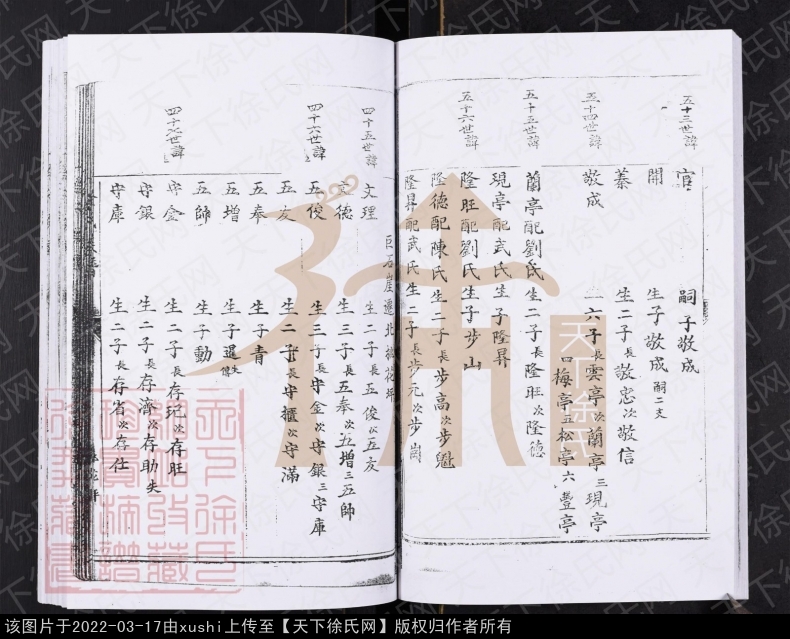 五十三世諱
官 嗣子敬成
開 生子敬成 嗣二支
蓁 生二子長敬忠次敬信
五十四世諱
敬成 六子長雲亭次蘭亭三現亭
四梅亭五松亭六豐亭
五十五世諱
蘭亭配劉氏生二子長隆旺次隆德
現亭配武氏生子隆昇
五十六世諱
隆旺配劉氏生子步山
隆德配陳氏生二子長步高次步魁
隆昇配武氏生二子長步元次步崗
四十五世諱
文理 生二子長五俊次五友
巨石崖遷北
文德 生三子長五奉次五增三五師
四十六世諱
五俊 生三子長守金次守銀三守庫
五友 生二子長守櫃次守滿
五奉 生子青
五增 生子選
五師 生子動
四十七世諱
守金 生二子長存玘次存旺
守銀 生二子長存濟次存助失
守庫 生二子長存省次存仕
天下徐氏
天下徐氏网
该图片于2022-03-17由xushi上传至【天下徐氏网】版权归作者所有